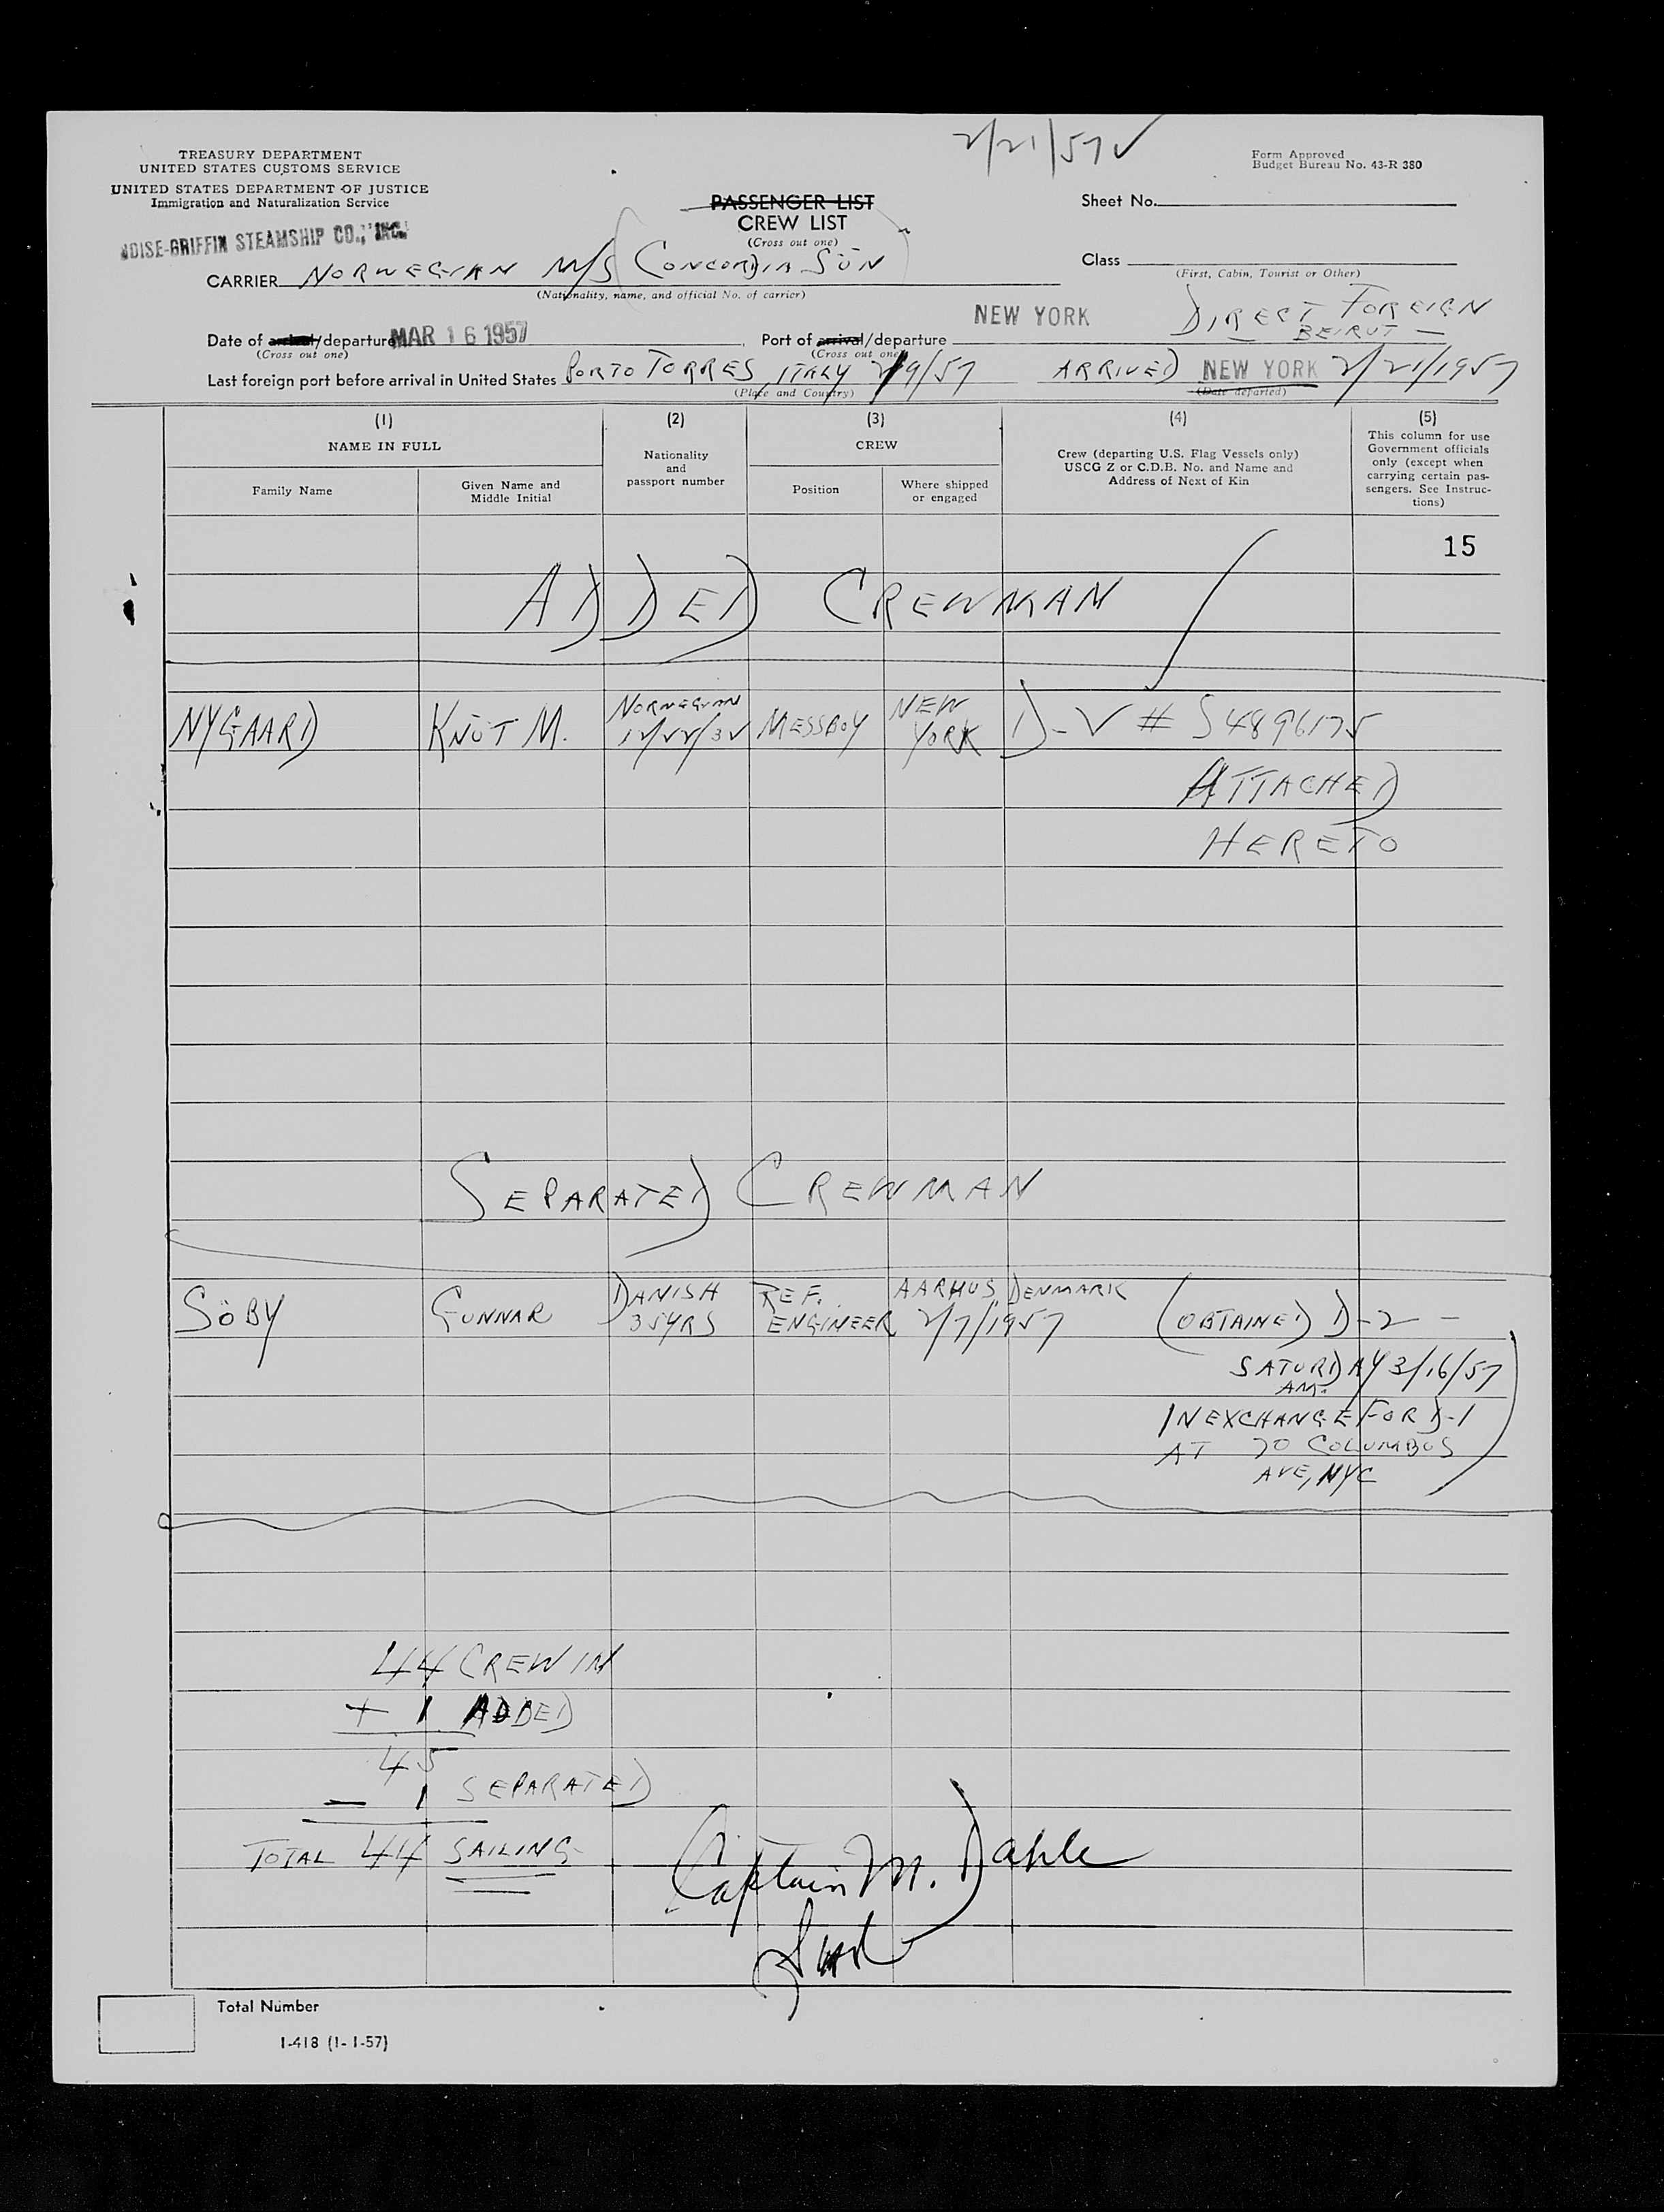 2/21/57 ✓
TREASURY DEPARTMENT
UNITED STATES CUSTOMS SERVICE
UNITED STATES DEPARTMENT OF JUSTICE
Immigration and Naturalization Service
Form Approved
Budget Bureau No. 43-R 380
PASSENGER LIST
CREW LIST
(Cross out one)
Sheet No.
-GRIFFIN STEAMSHIP CO., INC.
CARRIER NORWEGIAN M/S CONCORDIA SUN
(Nationality, name, and official No. of carrier)
Class
(First, Cabin, Tourist or Other)
DIRECT FOREIGN
— BEIRUT —
Date of arrival/departure MAR 16 1957 Port of arrival/departure NEW YORK
(Cross out one) (Cross out one)
Last foreign port before arrival in United States PORTO TORRES, ITALY 2/9/57 ARRIVED NEW YORK 2/21/1957
(Place and Country) (Date departed)
(1) (2) (3) (4) (5)
NAME IN FULL
Family Name
Given Name and
Middle Initial
Nationality
and
passport number
CREW
Position
Where shipped
or engaged
Crew (departing U.S. Flag Vessels only)
USCG Z or C.D.B. No. and Name and
Address of Next of Kin
This column for use
Government officials
only (except when
carrying certain pas-
sengers. See Instruc-
tions)
15
ADDED CREWMAN
NYGAARD KNUT M. NORWEGIAN MESSBOY NEW YORK D-V # S4896175
ATTACHED
HERETO
SEPARATED CREWMAN
SÖBY GUNNAR DANISH 35YRS REF. ENGINEER AARHUS, DENMARK 2/7/1957 (OBTAINED D-2 —
SATURDAY 3/16/57
AM.
IN EXCHANGE FOR D-1
AT 70 COLUMBUS
AVE, NYC)
44 CREW IN
+ 1 ADDED
45
— 1 SEPARATED
TOTAL 44 SAILING
Captain M. Dahle
Total Number
I-418 (1-1-57)